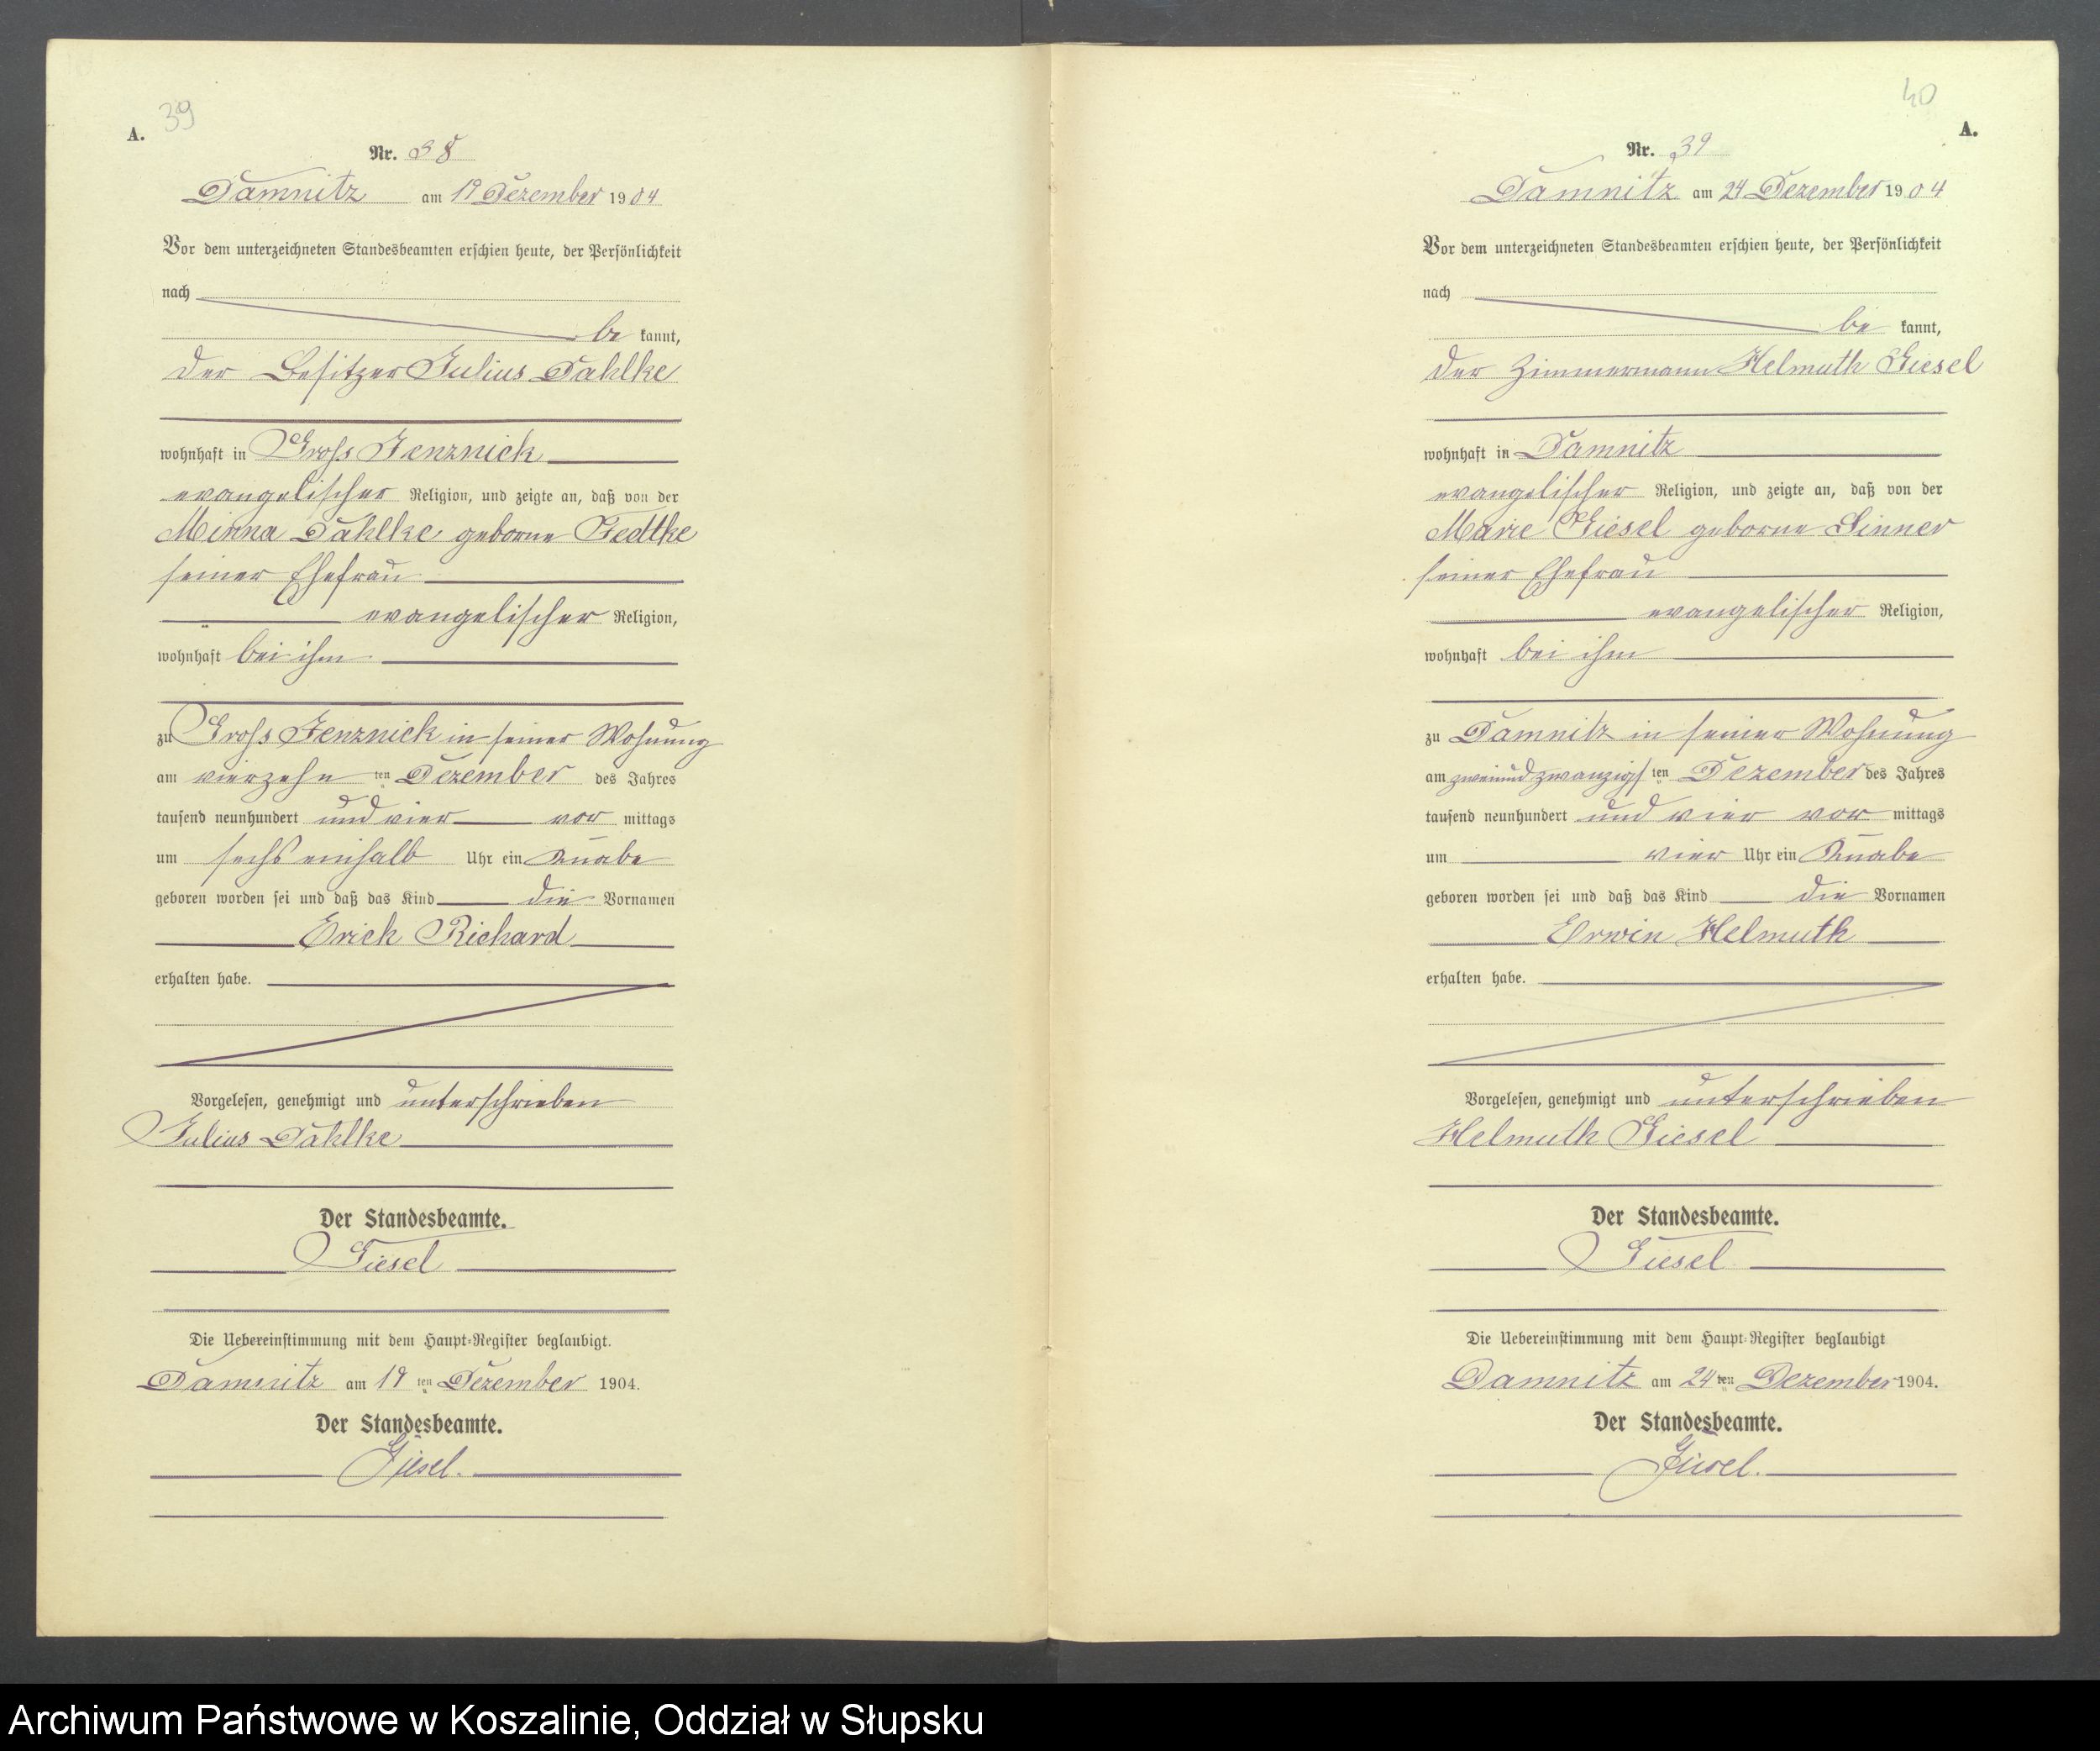 39
A.
Nr. 38
Damnitz am 19 Dezember 1904
Vor dem unterzeichneten Standesbeamten erschien heute, der Persönlichkeit
nach
be kannt,
der Besitzer Julius Dahlke
wohnhaft in Gross Jenznick
evangelischer Religion, und zeigte an, daß von der
Minna Dahlke geborne Fedtke
seiner Ehefrau
evangelischer Religion,
wohnhaft bei ihm
zu Gross Jenznick in seiner Wohnung
am vierzehn ten Dezember des Jahres
tausend neunhundert und vier vor mittags
um sechs einhalb Uhr ein Knabe
geboren worden sei und daß das Kind die Vornamen
Erich Richard
erhalten habe.
Vorgelesen, genehmigt und unterschrieben
Julius Dahlke
Der Standesbeamte.
Giesel
Die Uebereinstimmung mit dem Haupt-Register beglaubigt.
Damnitz am 19 ten Dezember 1904.
Der Standesbeamte.
Giesel.
40
A.
Nr. 39
Damnitz am 24 Dezember 1904
Vor dem unterzeichneten Standesbeamten erschien heute, der Persönlichkeit
nach
be kannt,
der Zimmermann Helmuth Giesel
wohnhaft in Damnitz
evangelischer Religion, und zeigte an, daß von der
Marie Giesel geborne Sinner
seiner Ehefrau
evangelischer Religion,
wohnhaft bei ihm
zu Damnitz in seiner Wohnung
am zweiundzwanzigs ten Dezember des Jahres
tausend neunhundert und vier vor mittags
um vier Uhr ein Knabe
geboren worden sei und daß das Kind die Vornamen
Erwin Helmuth
erhalten habe.
Vorgelesen, genehmigt und unterschrieben
Helmuth Giesel
Der Standesbeamte.
Giesel
Die Uebereinstimmung mit dem Haupt-Register beglaubigt
Damnitz am 24 ten Dezember 1904.
Der Standesbeamte.
Giesel.
Archiwum Państwowe w Koszalinie, Oddział w Słupsku